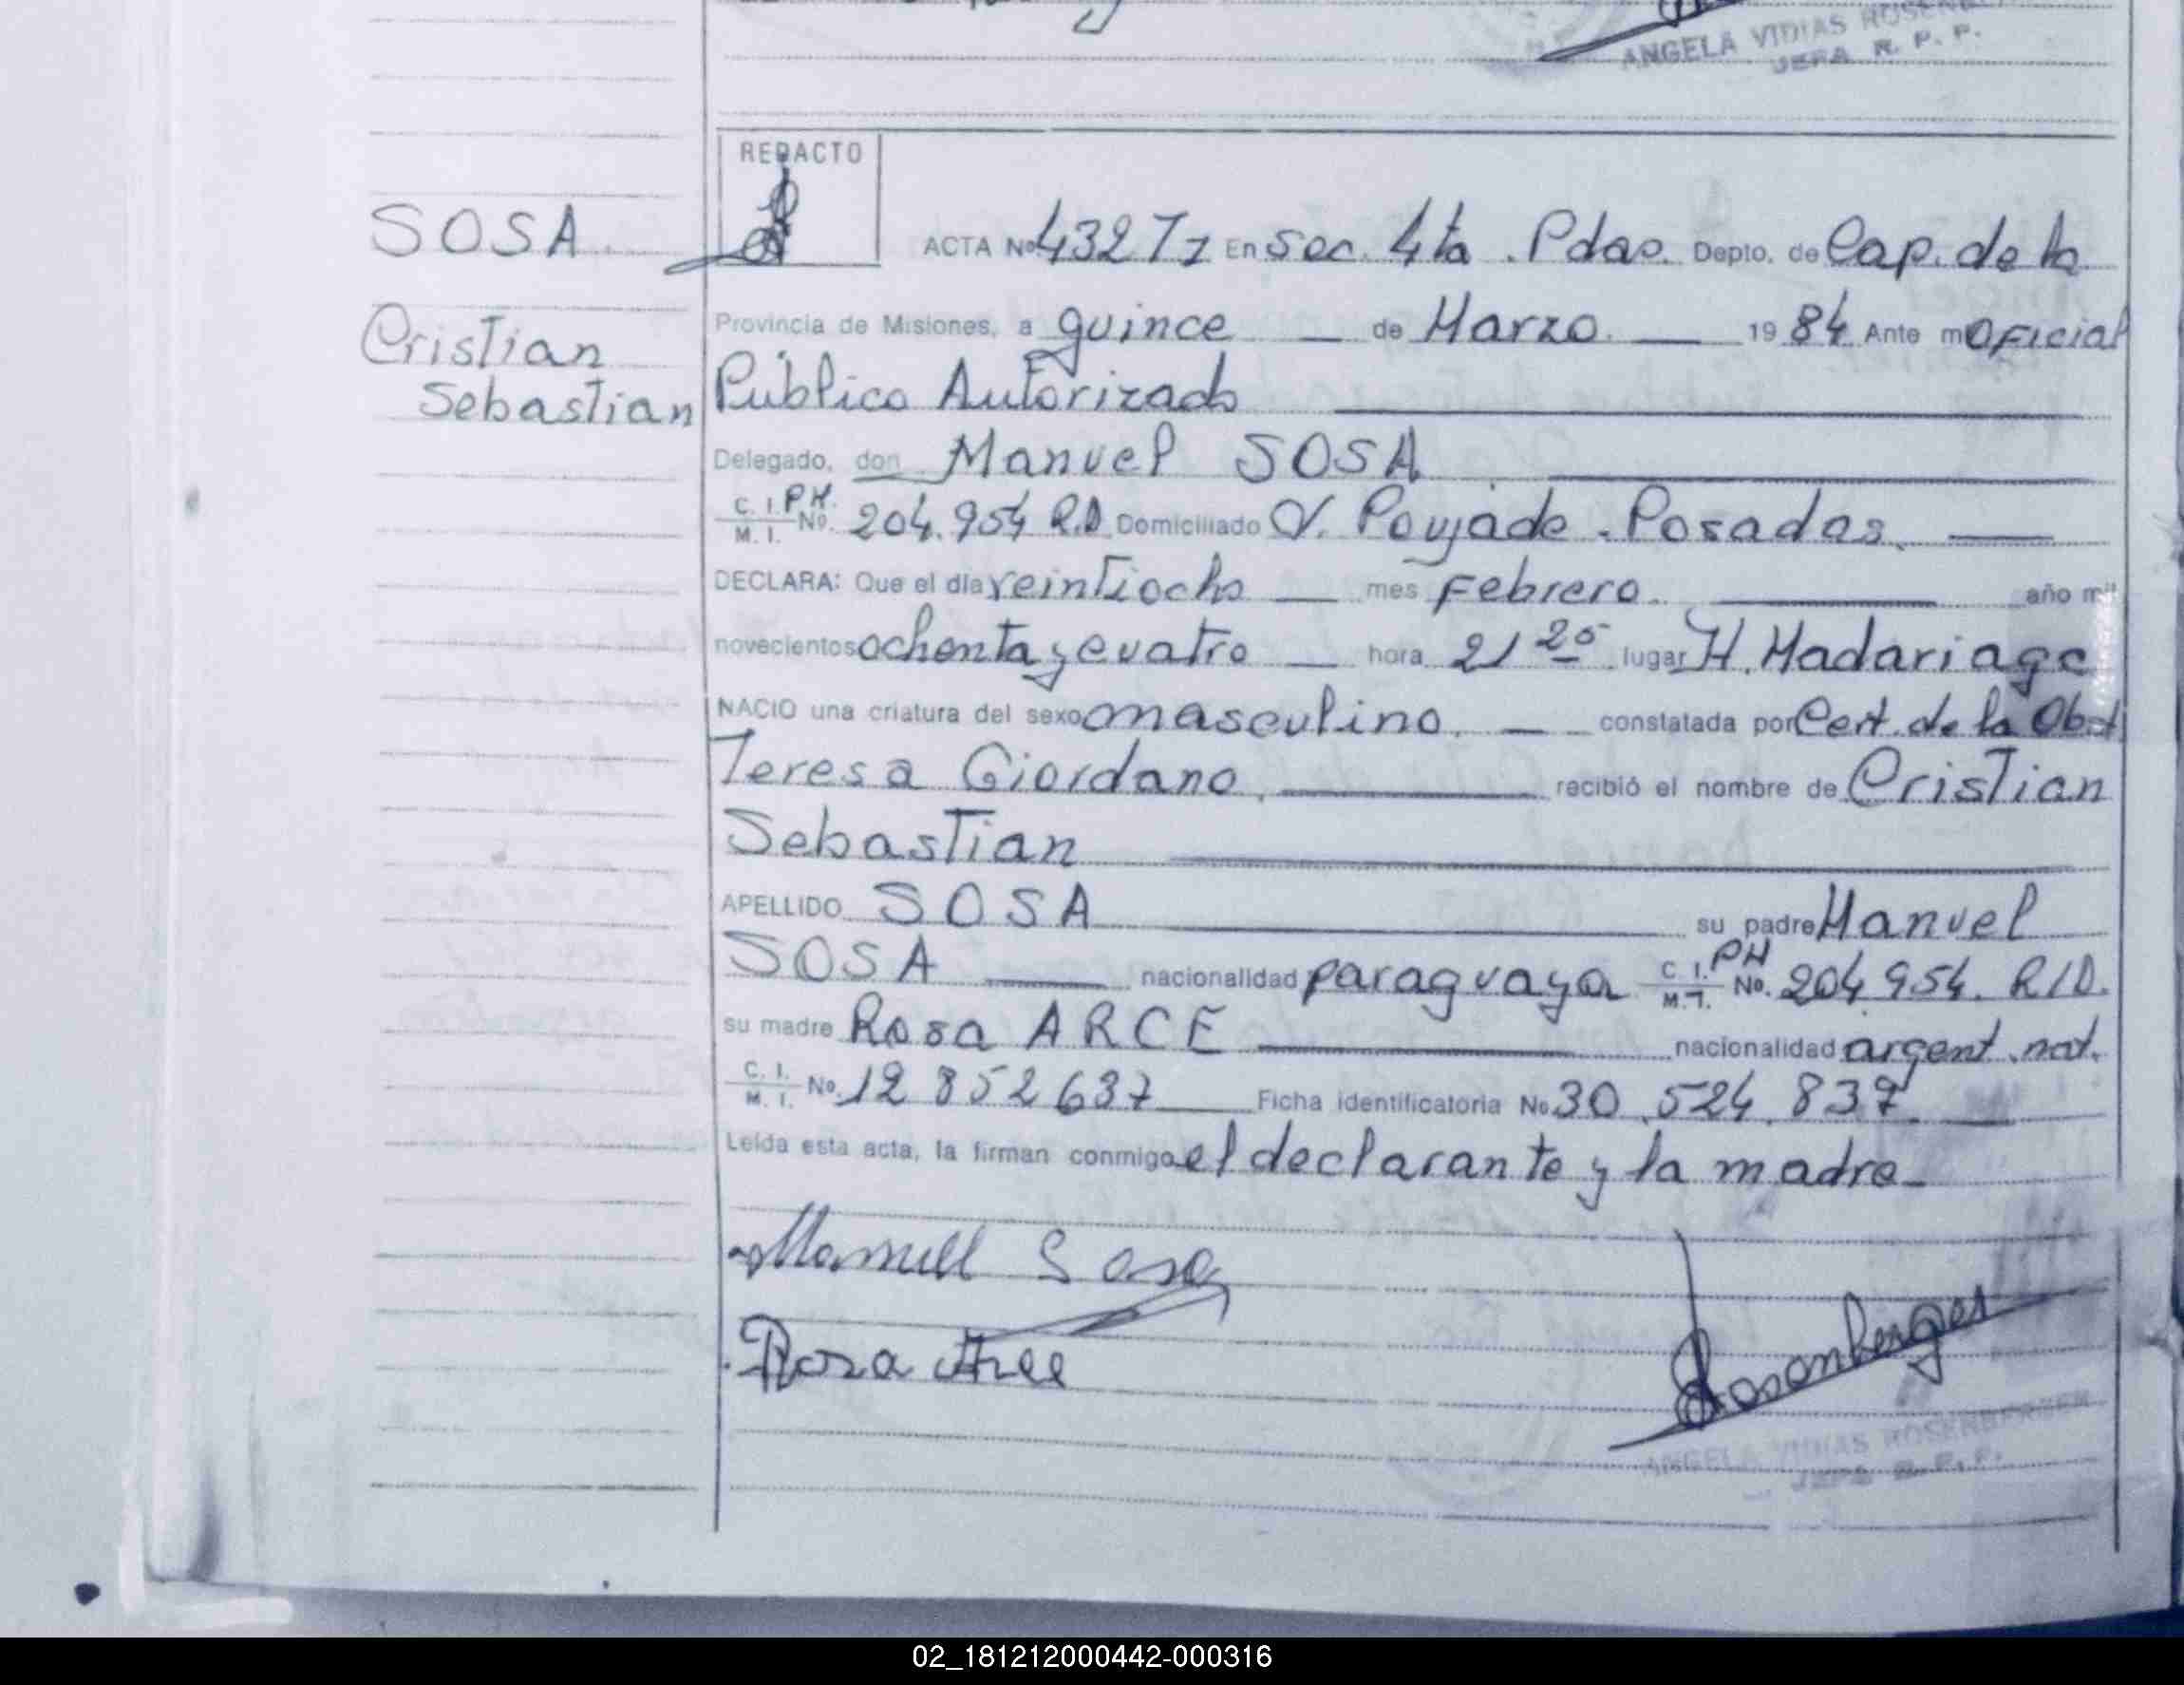 ANGELA VIDIAS ROSENB
JEFA R. P. P.
REDACTO
SOSA
Cristian
Sebastian
ACTA Nº 432 T1 En Sec. 4ta. Pdas. Depto. de Cap. de la
Provincia de Misiones, a quince — de Marzo. — 19 84 Ante mi Oficial
Público Autorizado
Delegado, don Manuel SOSA
C. I. P.H.
M. I. Nº. 204.954 R.D. Domiciliado V. Poujade - Posadas. —
DECLARA: Que el día veintiocho — mes Febrero. — año mil
novecientos ochenta y cuatro — hora 21 25 lugar H. Madariaga
NACIO una criatura del sexo masculino. — constatada por Cert. de la Obst.
Teresa Giordano. — recibió el nombre de Cristian
Sebastian
APELLIDO SOSA — su padre Manuel
SOSA — nacionalidad paraguaya C. I. PH M. I. No. 204.954. R/D.
su madre Rosa ARCE — nacionalidad argent. nat.
C. I. M. I. No. 12 852 637 — Ficha identificatoria No 30.524.837
Leída esta acta, la firman conmigo el declarante y la madre
Manuell Sosa
Rosa Arce
Rosenberger
ANGELA VIDIAS ROSENBERGER
JEFA R. P. P.
02_181212000442-000316